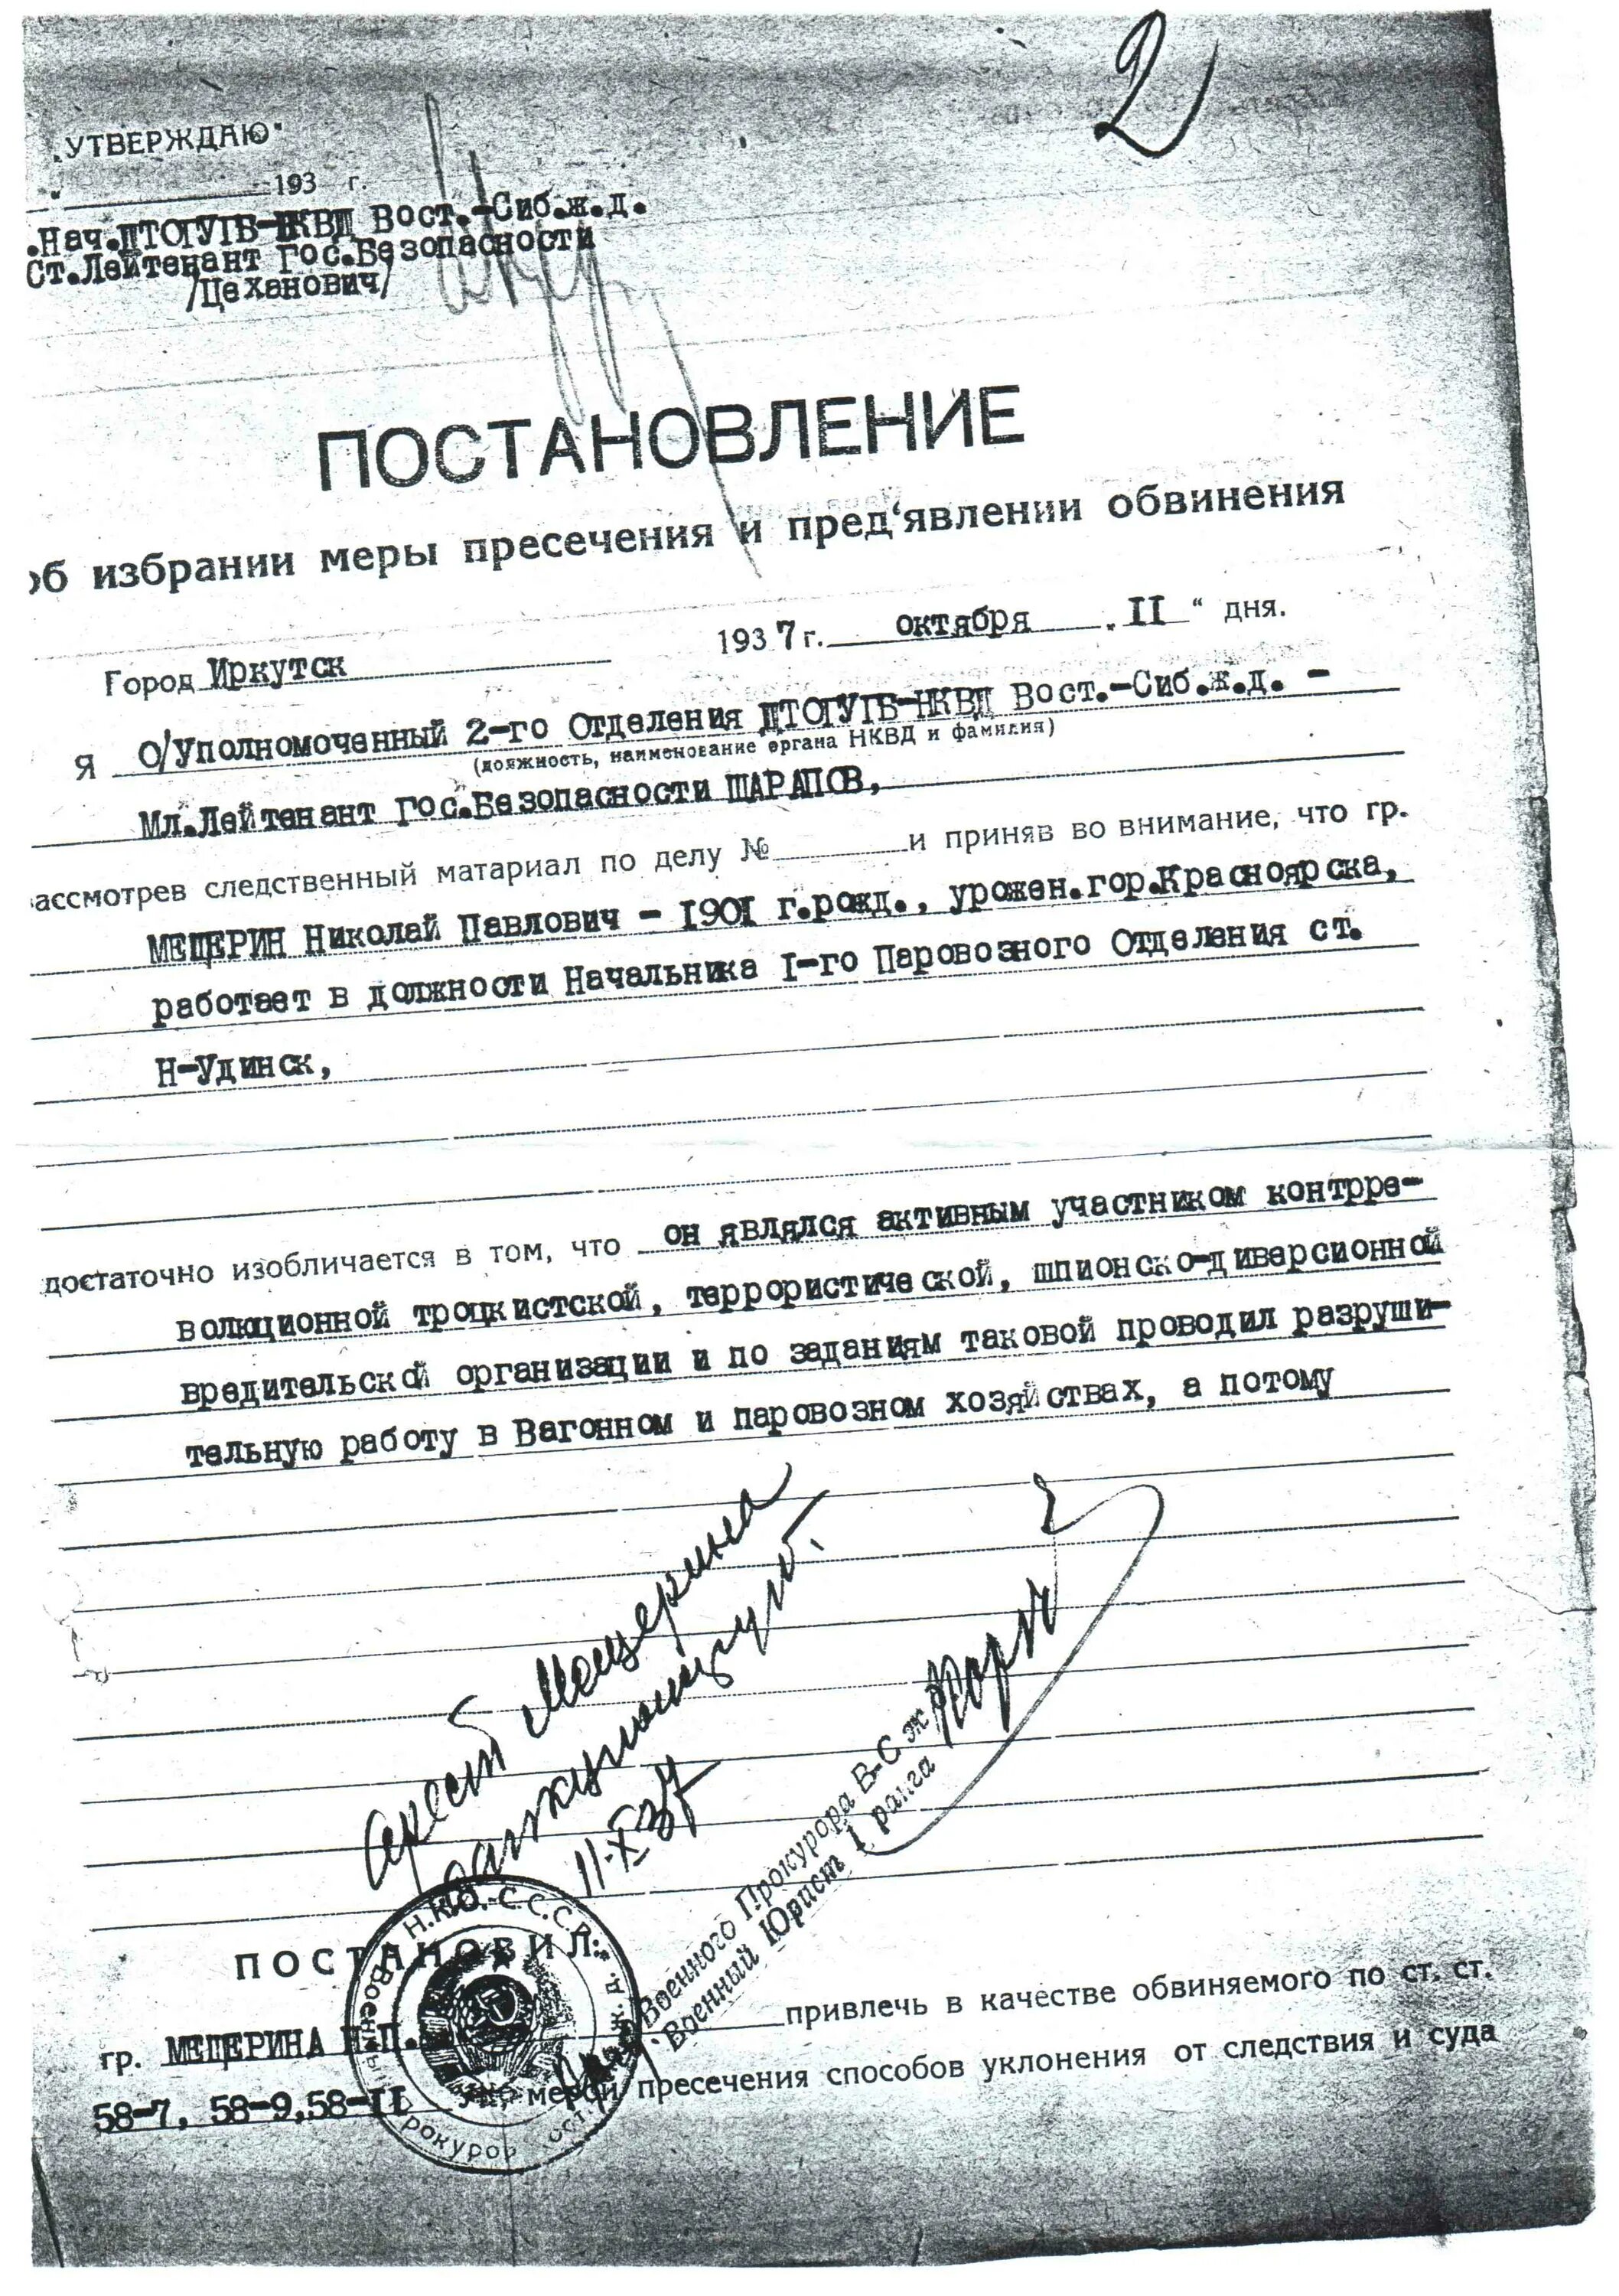 2
„УТВЕРЖДАЮ“
“ 193 г.
.Нач.ДТОГУГБ-НКВД Вост.-Сиб.ж.д.
Ст.Лейтенант Гос.Безопасности
/Цеханович/
ПОСТАНОВЛЕНИЕ
об избрании меры пресечения и пред‘явлении обвинения
Город Иркутск 1937 г. октября „II“ дня.
Я О/Уполномоченный 2-го Отделения ДТОГУГБ-НКВД Вост.-Сиб.ж.д. -
(должность, наименование органа НКВД и фамилия)
Мл.Лейтенант Гос.Безопасности ШАРАПОВ,
ассмотрев следственный матариал по делу № и приняв во внимание, что гр.
МЕЩЕРИН Николай Павлович - 1901 г.рожд., урожен.гор.Красноярска,
работает в должности Начальника I-го Паровозного Отделения ст.
Н-Удинск,
достаточно изобличается в том, что он являлся активным участником контрре-
волюционной троцкистской, террористической, шпионско-диверсионной
вредительской организации и по заданиям таковой проводил разруши-
тельную работу в Вагонном и паровозном хозяйствах, а потому
Арест Мещерина
санкционирую.
11-X-37
Военного Прокурора В-С ж
Военный Юрист 1 ранга
Н.К.О.-С.С.С.Р.
ПОСТАНОВИЛ:
гр. МЕЩЕРИНА Н.П. привлечь в качестве обвиняемого по ст. ст.
58-7, 58-9,58-II УК, мерой пресечения способов уклонения от следствия и суда